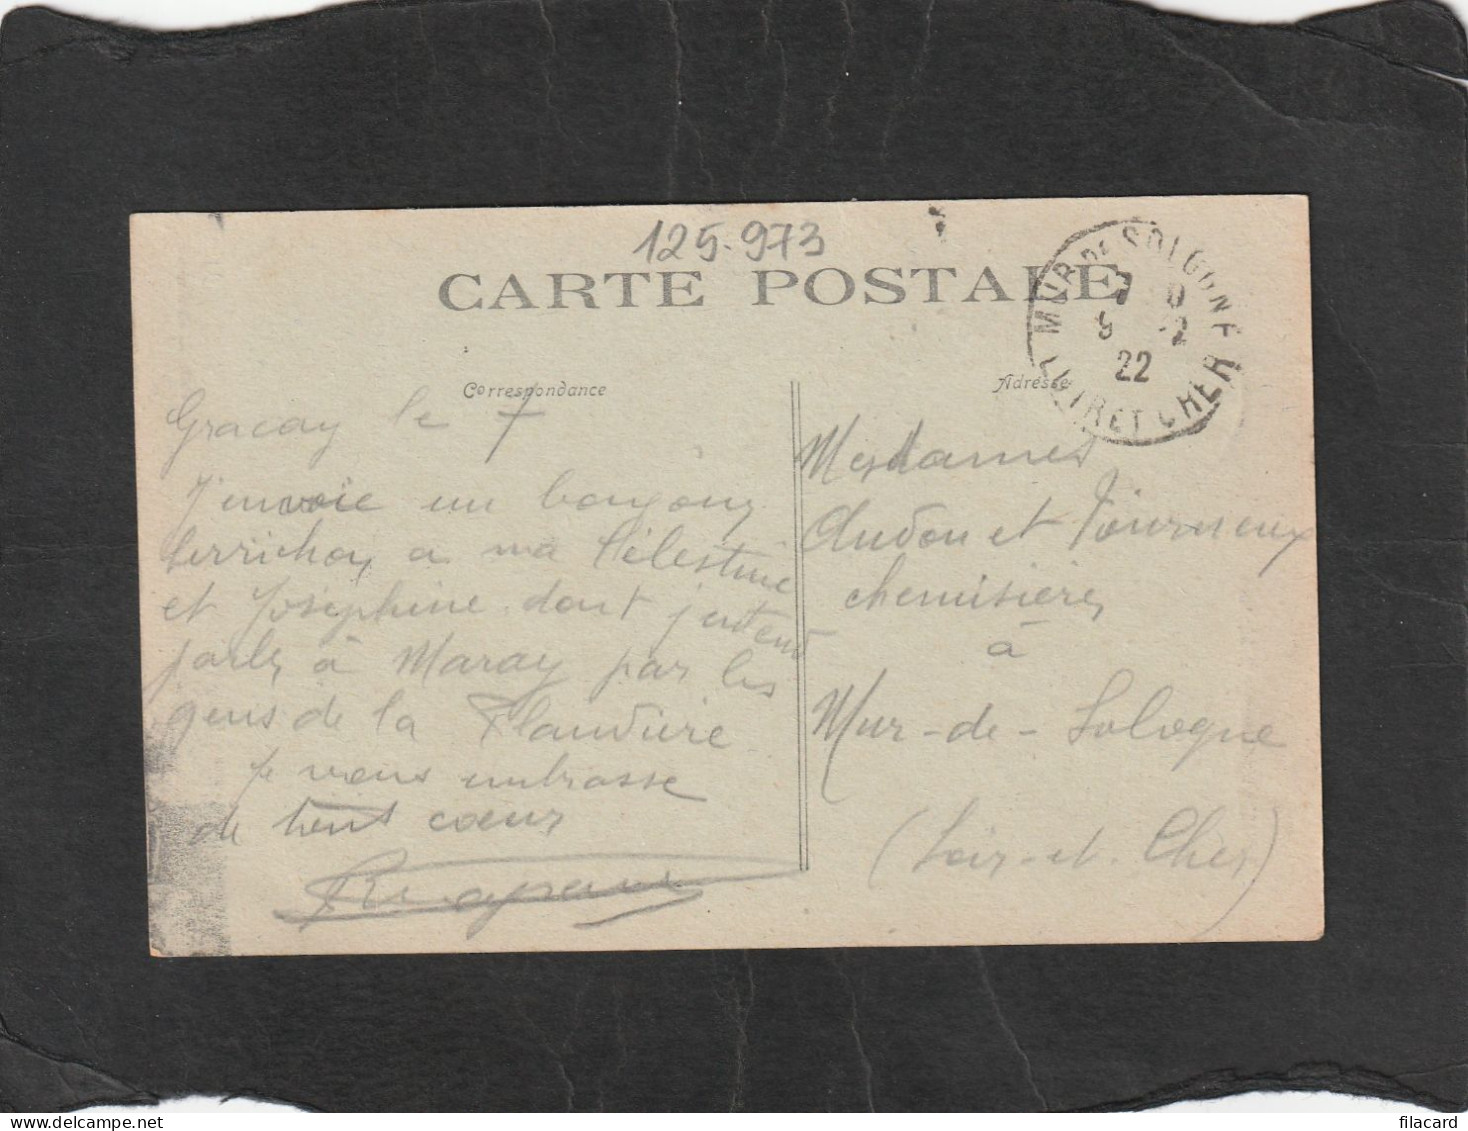 125-973
CARTE POSTALE
MUR DE SOLOGNE
9 -2
22
LOIR ET CHER
Correspondance
Adresse
Gracay le 7
J'envoie un bonjour
berrichon a ma Célestine
et Joséphine dont j'entend
parler à Maray par les
gens de la
Je vous embrasse
de tout cœur
Mesdames
Audou et Tourneux
chemisières
à
Mur-de-Sologne
(Loir-et-Cher)
filacard.com